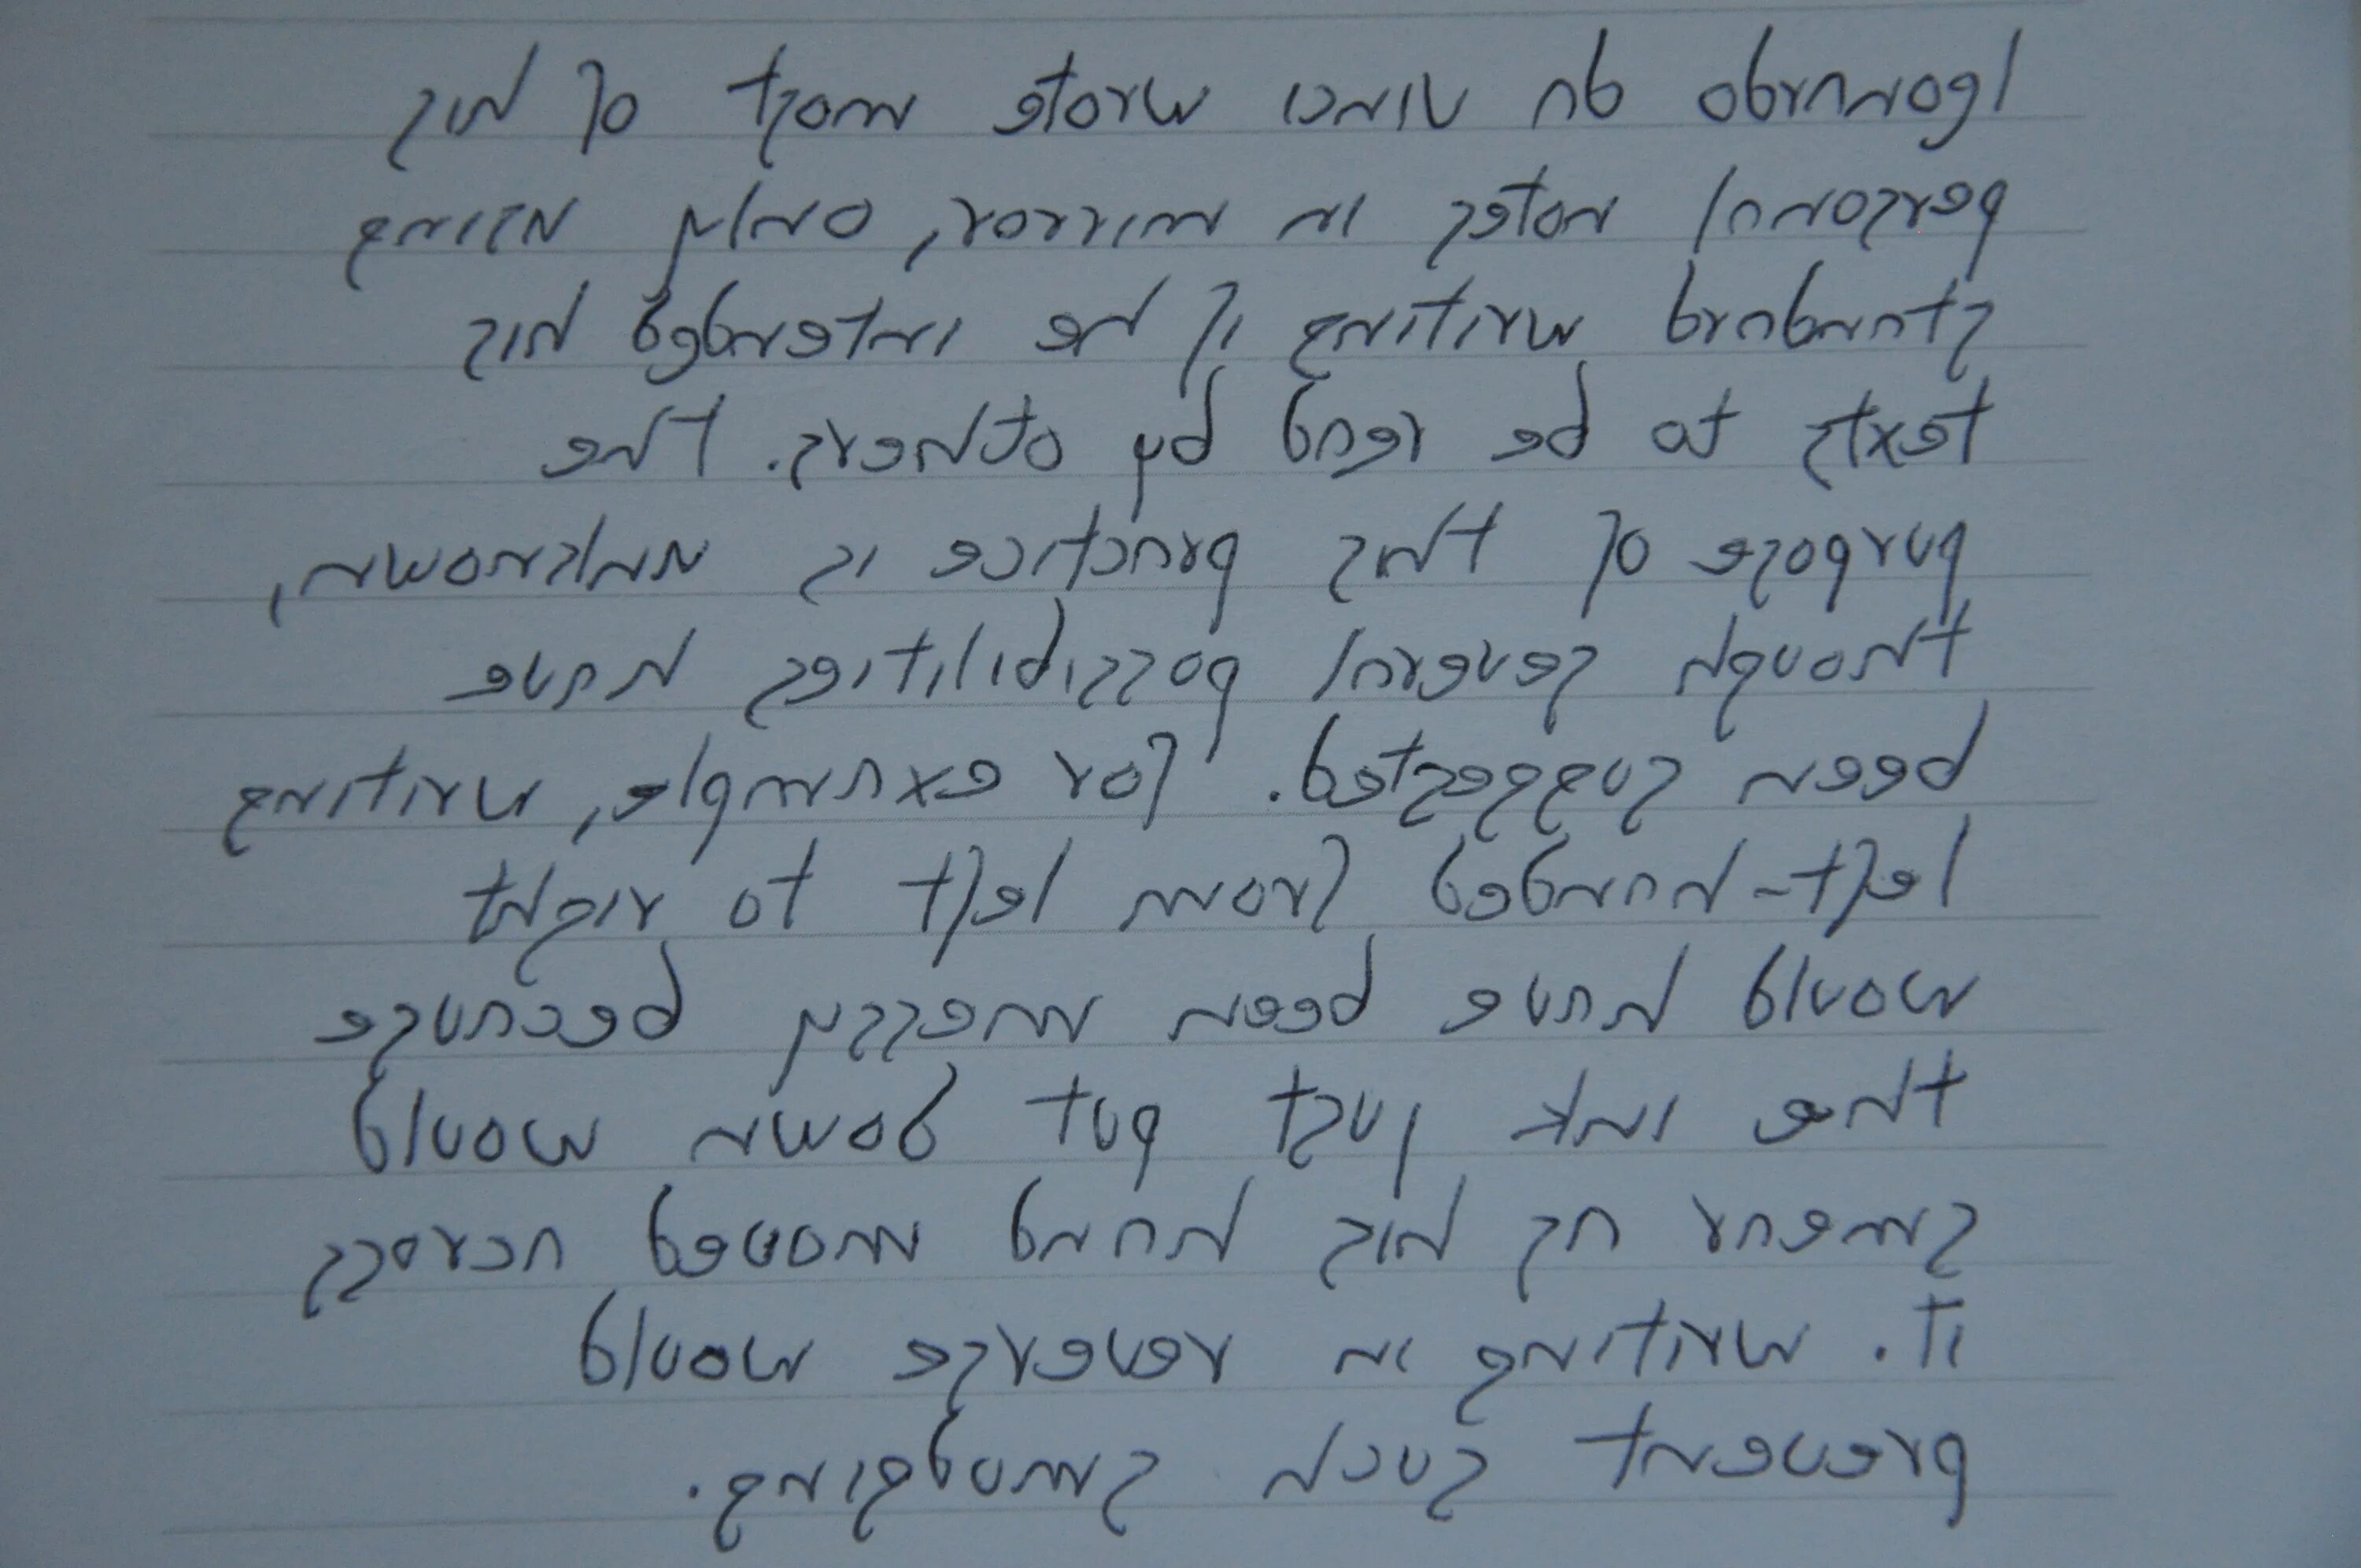 leonardo da vinci wrote most of his
personal notes in mirror, only using
standard writing if he intended his
texts to be read by others. The
purpose of this practice is unknown,
though several possibilities have
been suggested. for example, writing
left-handed from left to right
would have been messy because
the ink just put down would
smear as his hand moved across
it. writing in reverse would
prevent such smudging.